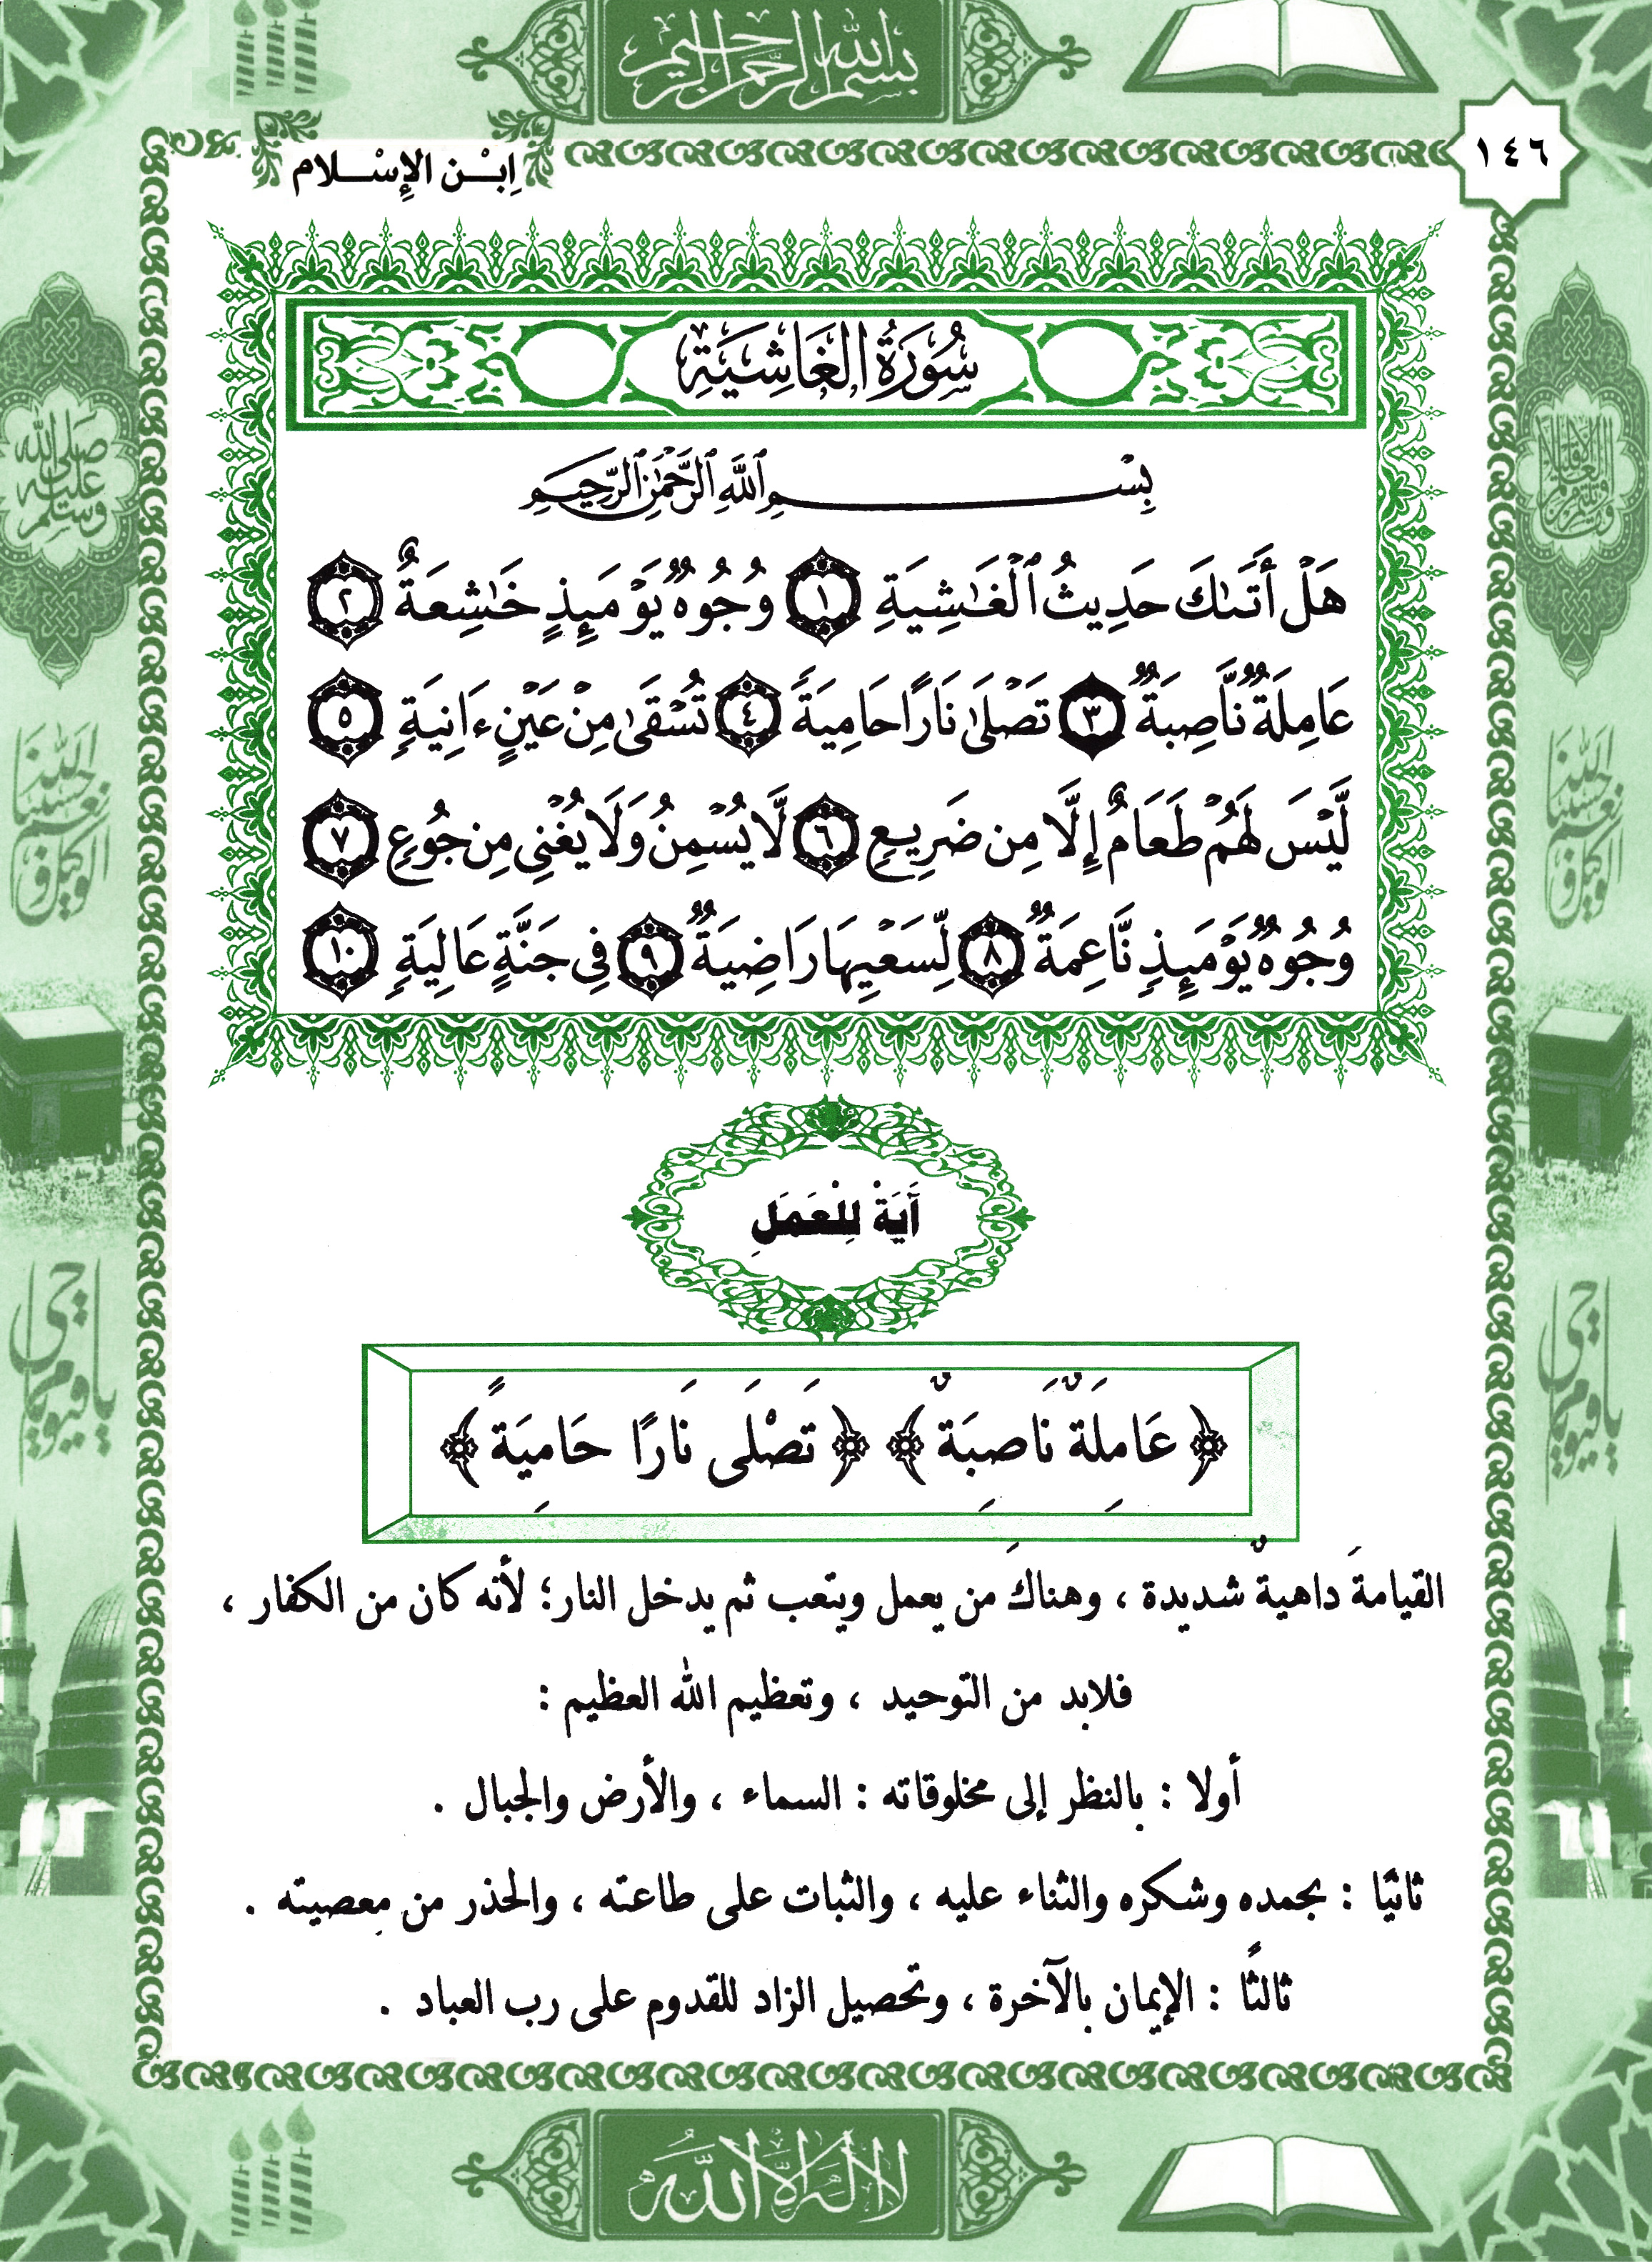 بسم الله الرحمن الرحيم
١٤٦
اِبْـن الإِسْـلام
سُورَةُ الغَاشِيَةِ
بِسْمِ ٱللَّهِ ٱلرَّحْمَٰنِ ٱلرَّحِيمِ
هَلْ أَتَىٰكَ حَدِيثُ ٱلْغَٰشِيَةِ ١ وُجُوهٌ يَوْمَئِذٍ خَٰشِعَةٌ ٢
عَامِلَةٌ نَّاصِبَةٌ ٣ تَصْلَىٰ نَارًا حَامِيَةً ٤ تُسْقَىٰ مِنْ عَيْنٍ ءَانِيَةٍ ٥
لَّيْسَ لَهُمْ طَعَامٌ إِلَّا مِن ضَرِيعٍ ٦ لَّا يُسْمِنُ وَلَا يُغْنِى مِن جُوعٍ ٧
وُجُوهٌ يَوْمَئِذٍ نَّاعِمَةٌ ٨ لِّسَعْيِهَا رَاضِيَةٌ ٩ فِى جَنَّةٍ عَالِيَةٍ ١٠
آَيَةْ لِلْعَمَلِ
﴿عَامِلَةٌ نَاصِبَةٌ﴾ ﴿تَصْلَى نَارًا حَامِيَةً﴾
القيامةَ داهيةٌ شديدة ، وهناكَ من يعمل ويتعب ثم يدخل النار؛ لأنه كان من الكفار ،
فلابد من التوحيد ، وتعظيم الله العظيم :
أولا : بالنظر إلى مخلوقاته : السماء ، والأرض والجبال .
ثانيًا : بحمده وشكره والثناء عليه ، والثبات على طاعته ، والحذر من معصيته .
ثالثًا : الإيمان بالآخرة ، وتحصيل الزاد للقدوم على رب العباد .
صلى الله عليه وسلم
حسبنا الله ونعم الوكيل
يا حي يا قيوم
حسبنا الله ونعم الوكيل
يا حي يا قيوم
لا إله إلا الله